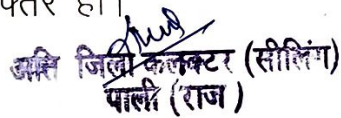 हो।
अति जिला कलक्टर (सीलिंग)
पाली (राज)